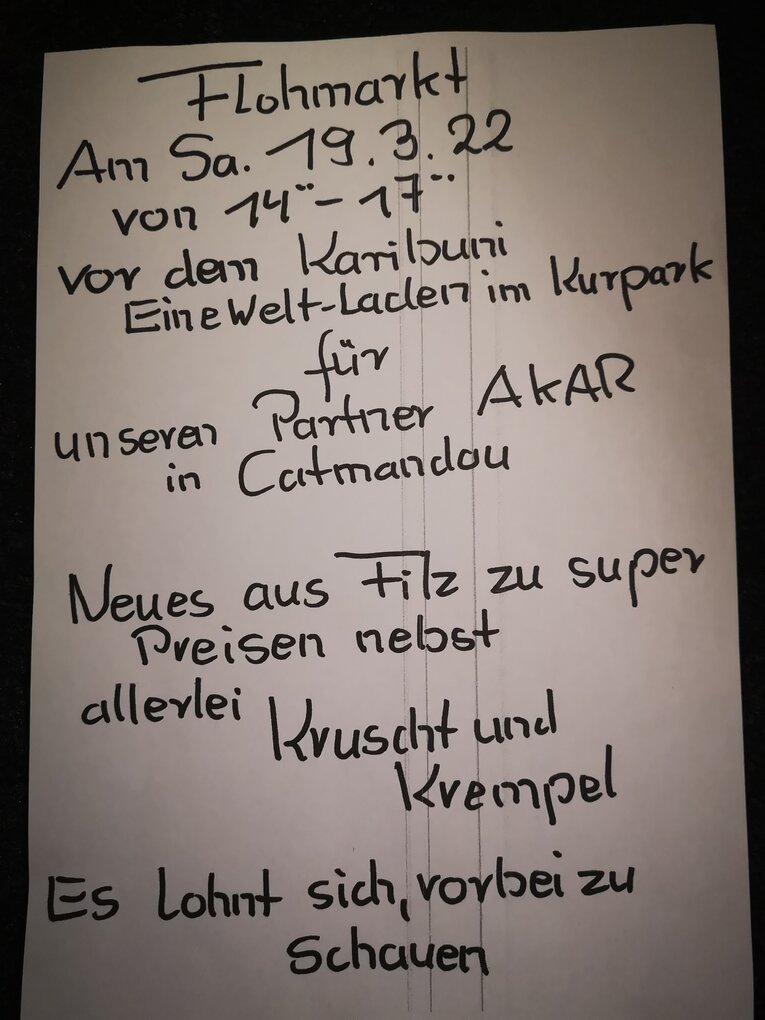 Flohmarkt
Am Sa. 19.3.22
von 14°° - 17°°
vor dem Karibuni
Eine Welt-Laden im Kurpark
für
unseren Partner AKAR
in Catmandou
Neues aus Filz zu super
Preisen nebst
allerlei Kruscht und
Krempel
Es lohnt sich, vorbei zu
schauen